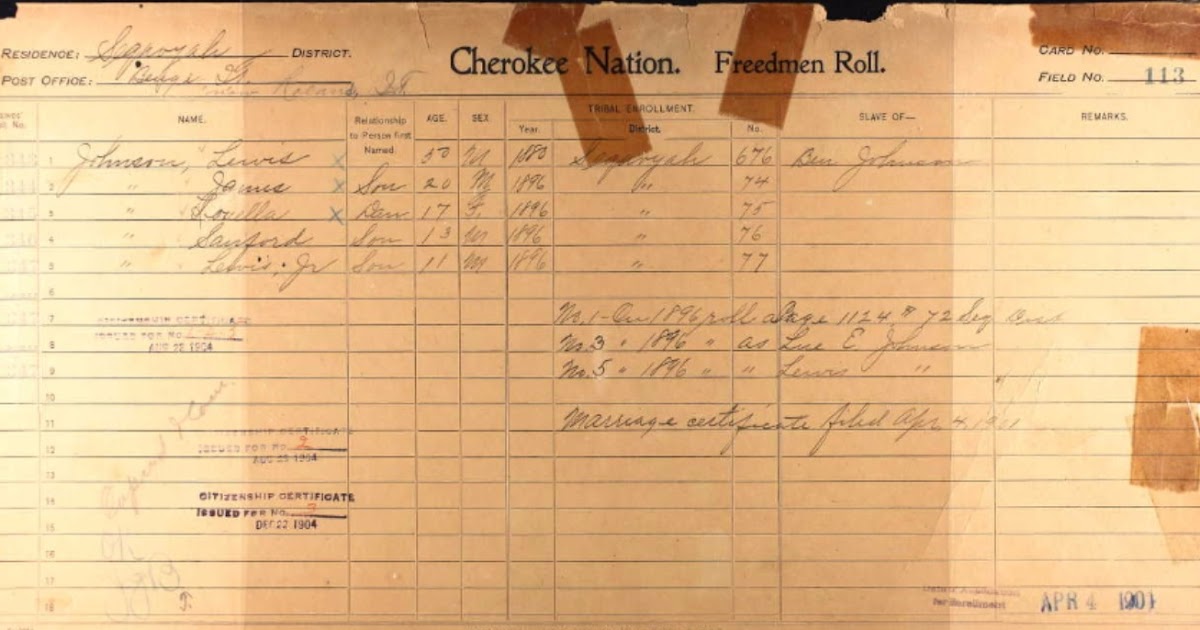 RESIDENCE: Seqavyah DISTRICT. Cherokee Nation. Freedmen Roll. CARD No.
POST OFFICE: I.T. FIELD No. 113
NAME. Relationship to Person First Named. AGE. SEX TRIBAL ENROLLMENT. SLAVE OF— REMARKS.
Year. District. No.
1 Johnson, Lewis X 50 M 1880 Seqavyah 676 Ben Johnson
2 " James X Son 20 M 1896 " 74
3 " Louella X Dau 17 F. 1896 " 75
4 " Sanford Son 13 M 1896 " 76
5 " Lewis, Jr Son 11 M 1896 " 77
6
7 No. 1 - On 1896 roll Page 1124 # 72 Seq Dist
8 No. 3 " 1896 " as Lue E. Johnson
9 No. 5 " 1896 " " Lewis "
10
11 Marriage certificate filed Apr. 4, 1901
12
13
14
15
16
17
18
CITIZENSHIP CERTIFICATE
ISSUED FOR No.
AUG 23 1904
CITIZENSHIP CERTIFICATE
ISSUED FOR No. 2
AUG 23 1904
CITIZENSHIP CERTIFICATE
ISSUED FOR No. 3
DEC 22 1904
for Enrollment APR 4 1901